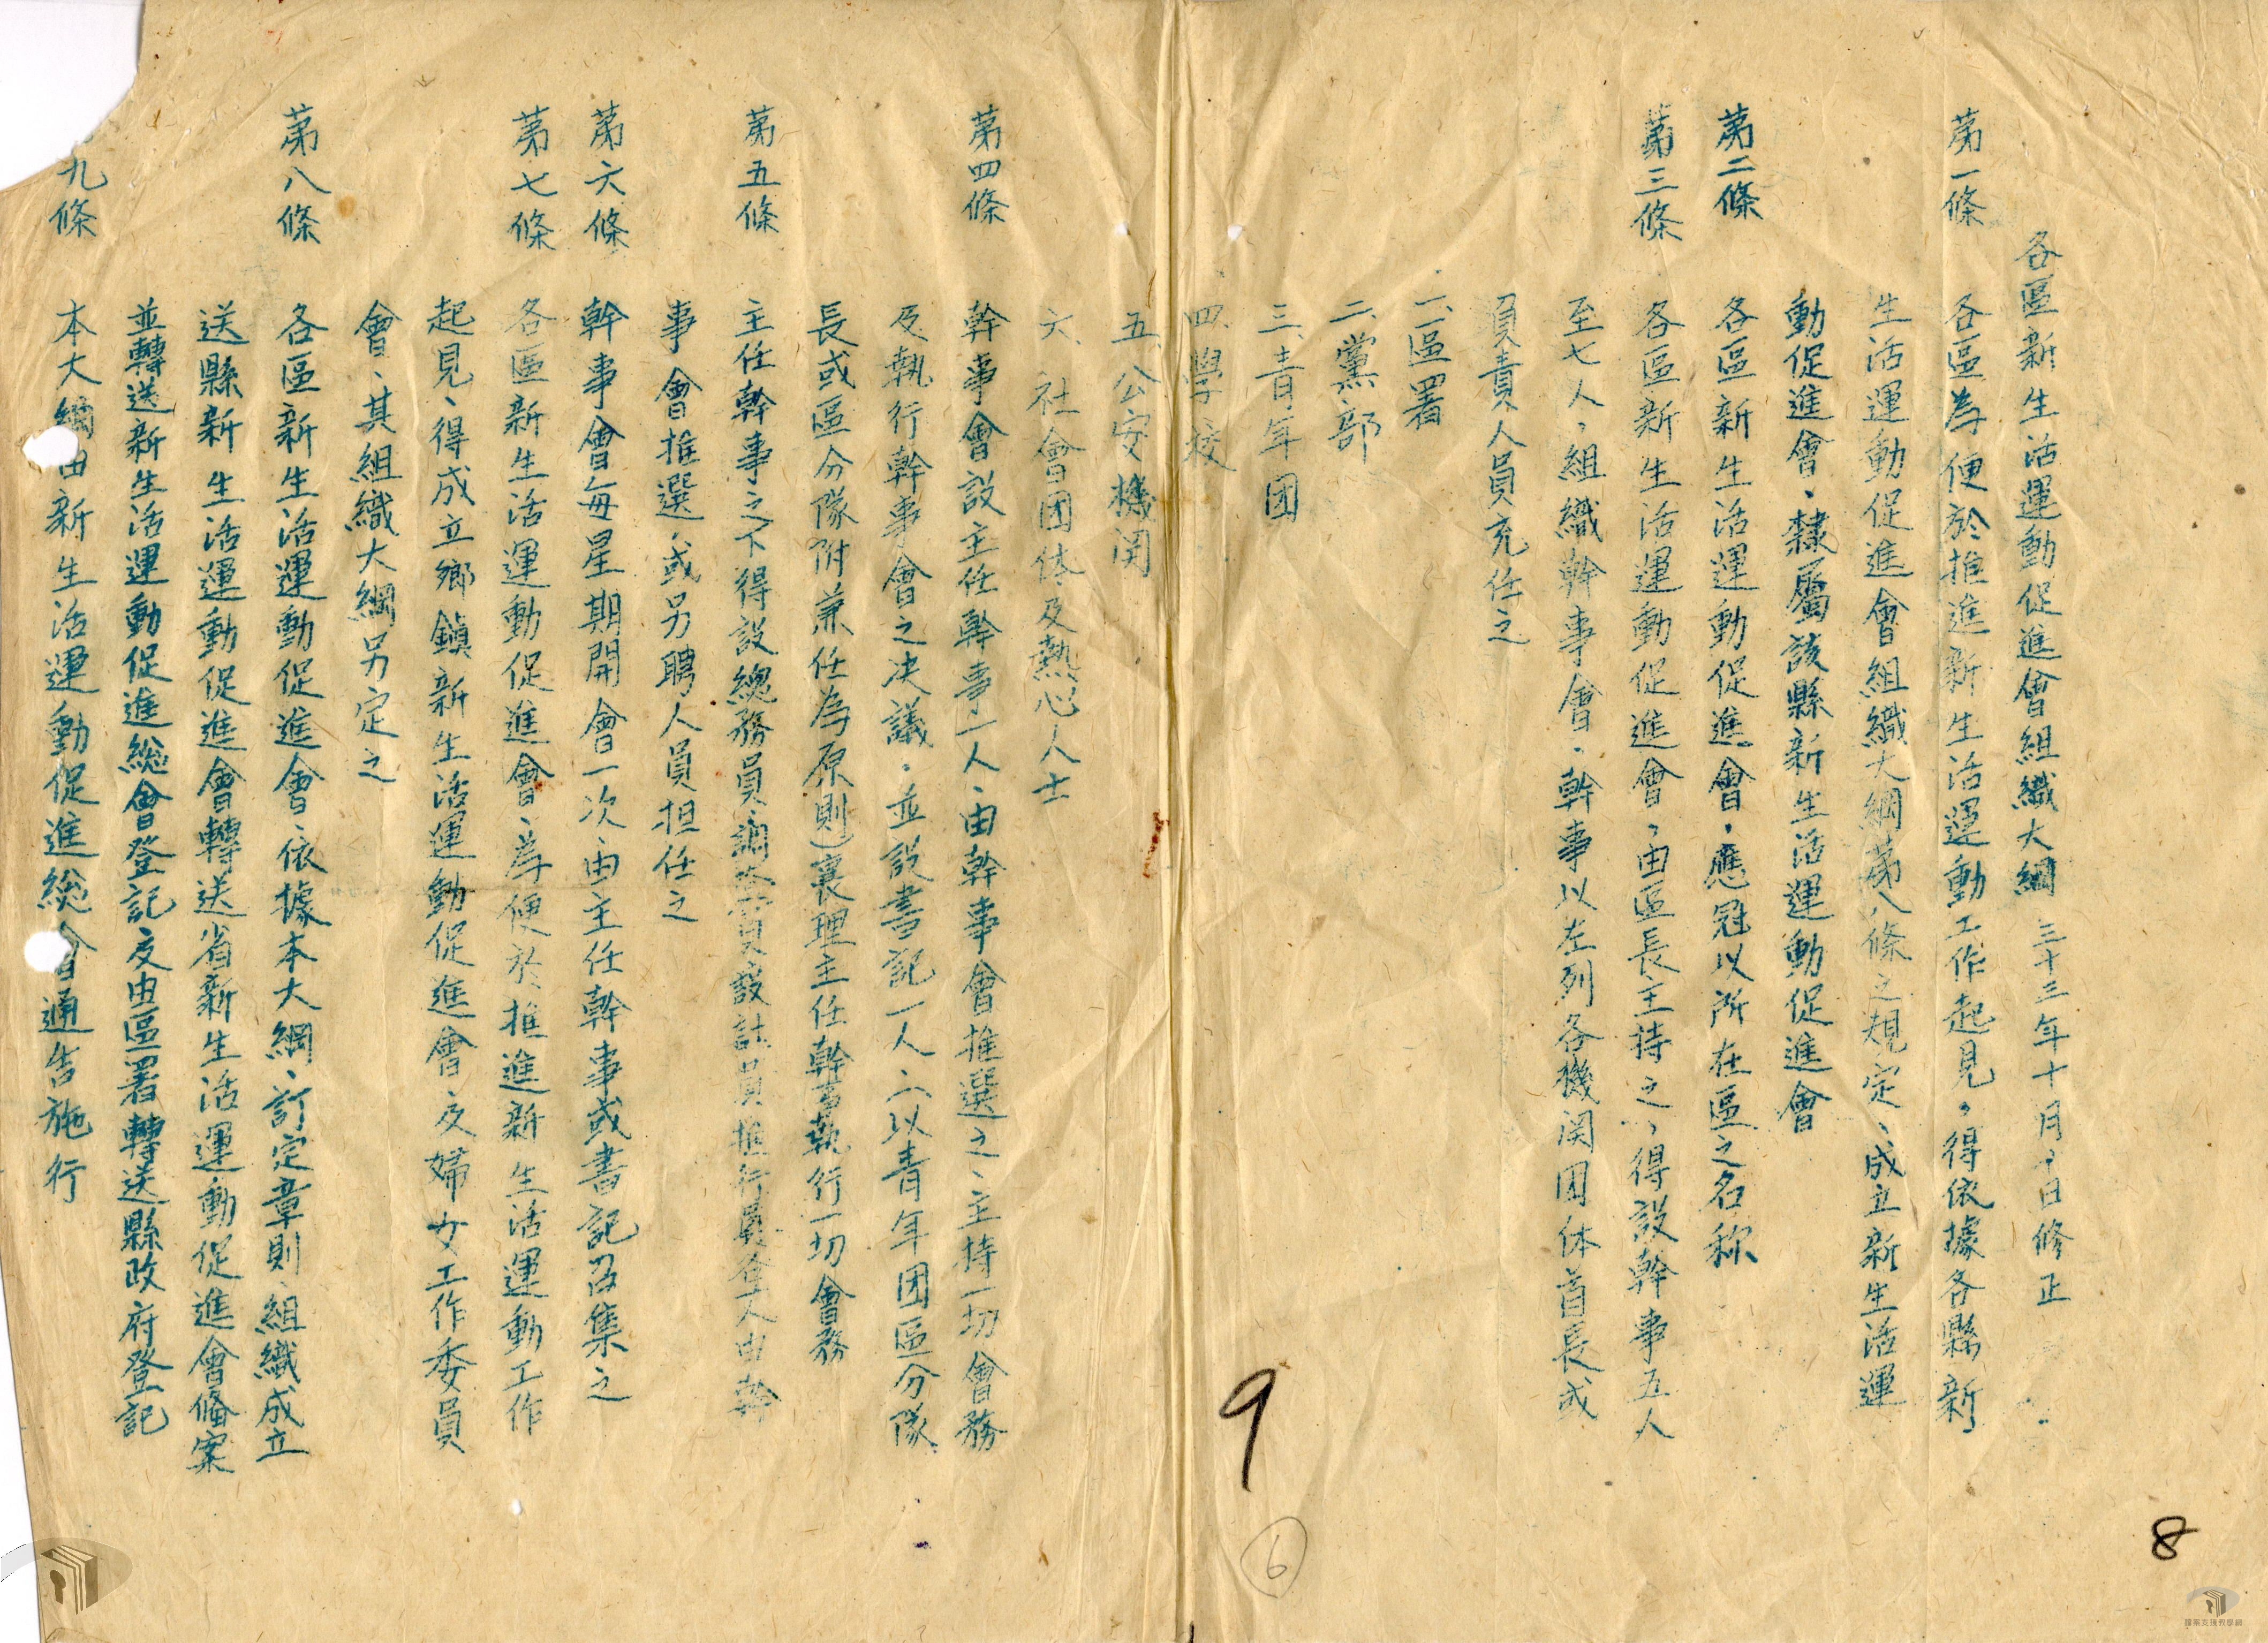 各區新生活運動促進會組織大綱 三十三年十月 日修正
第一條 各區為便於推進新生活運動工作起見，得依據各縣新
生活運動促進會組織大綱第八條之規定、成立新生活運
動促進會、隸屬該縣新生活運動促進會
第二條 各區新生活運動促進會、應冠以所在區之名称
第三條 各區新生活運動促進會，由區長主持之，得設幹事五人
至七人，組織幹事會、幹事以左列各機関团体首長或
負責人員充任之
一、區署
二、黨部
三、青年团
四、學校
五、公安機関
六、社會团体及熱心人士
第四條 幹事會設主任幹事一人、由幹事會推選之、主持一切會務
及執行幹事會之决議、並設書記一人（以青年团區分隊
長或區分隊附兼任為原則）襄理主任幹事執行一切會務
第五條 主任幹事之下得設總務員、調查員、設計員、推行員 人由幹
事會推選、或另聘人員担任之
第六條 幹事會每星期開會一次、由主任幹事或書記召集之
第七條 各區新生活運動促進會、為便於推進新生活運動工作
起見、得成立鄉鎮新生活運動促進會、及婦女工作委員
會、其組織大綱另定之
第八條 各區新生活運動促進會、依據本大綱、訂定章則、組織成立
送縣新生活運動促進會轉送省新生活運動促進會備案
並轉送新生活運動促進総會登記及由區署轉送縣政府登記
九條 本大綱由新生活運動促進総會通告施行
9
6
8
國家支援教學網